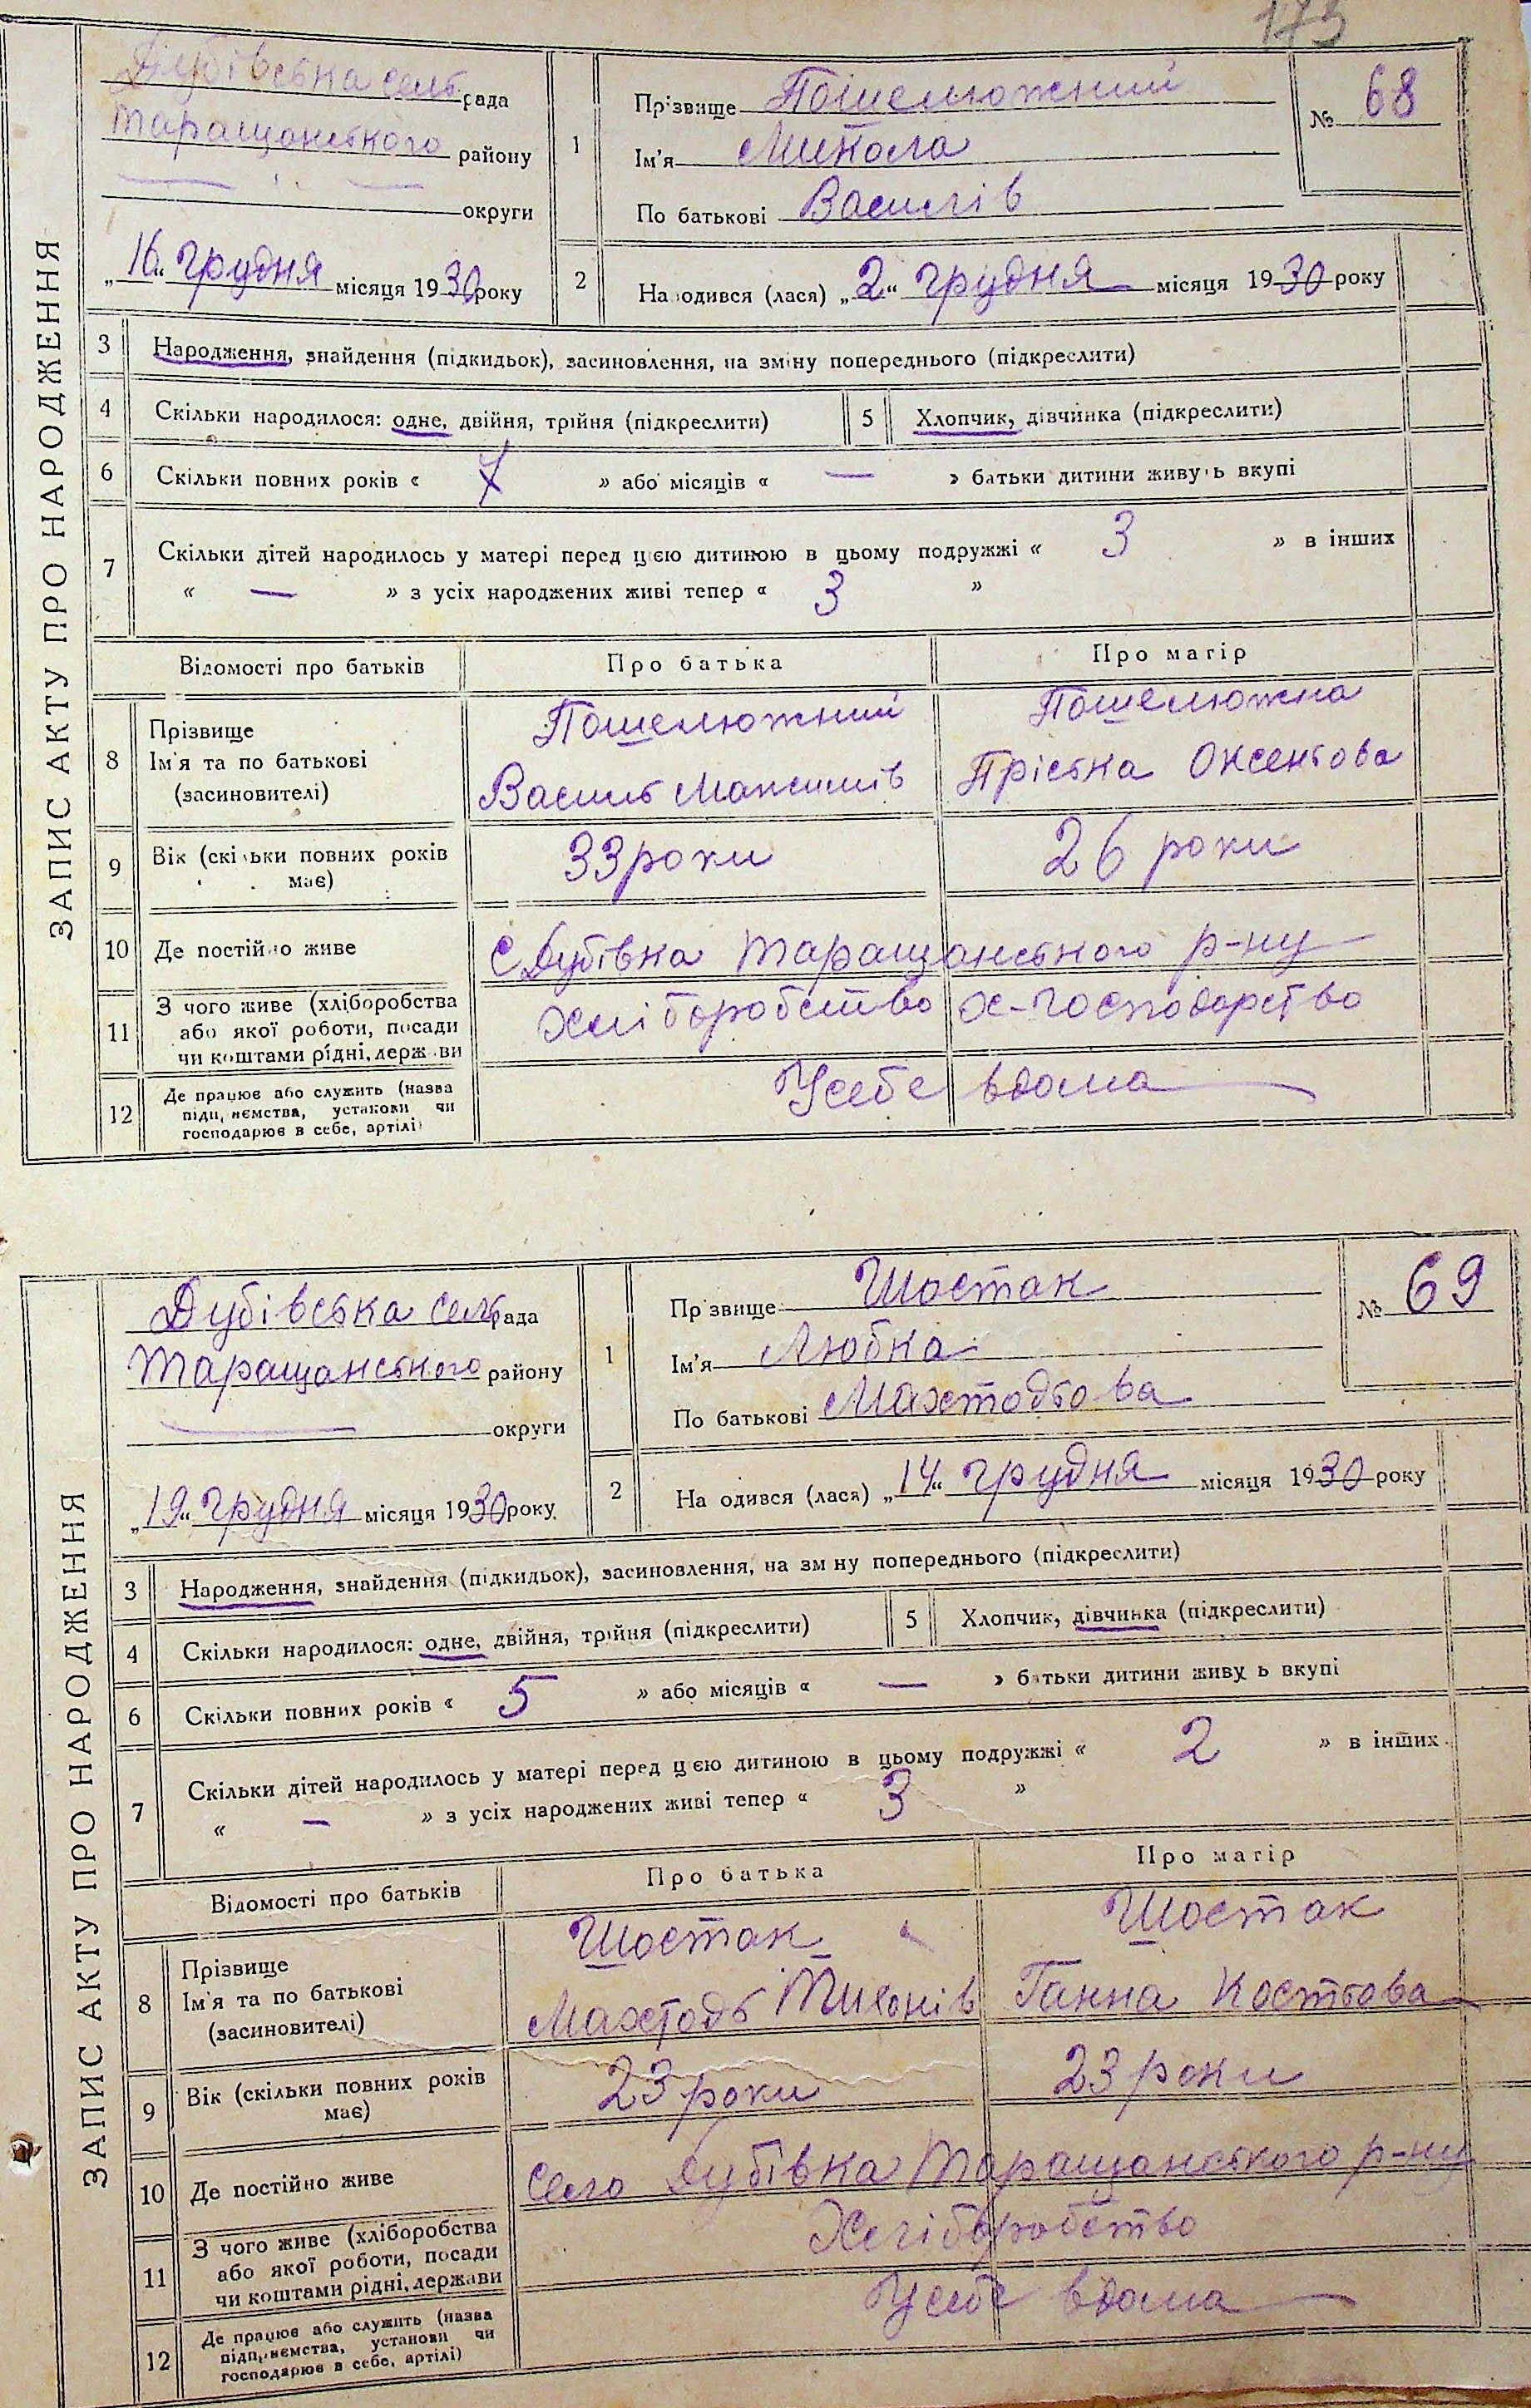 173
ЗАПИС АКТУ ПРО НАРОДЖЕННЯ
Дубівська сельрада
Таращанського району
— округи
„16“ грудня місяця 1930 року
1 Прізвище Пошелюжний
Ім'я Микола
По батькові Василів
№ 68
2 Народився (лася) „2“ грудня місяця 1930 року
3 Народження, знайдення (підкидьок), засиновлення, на зміну попереднього (підкреслити)
4 Скільки народилося: одне, двійня, трійня (підкреслити)
5 Хлопчик, дівчинка (підкреслити)
6 Скільки повних років « 7 » або місяців « — » батьки дитини живуть вкупі
7 Скільки дітей народилось у матері перед цією дитиною в цьому подружжі « 3 » в інших
« — » з усіх народжених живі тепер « 3 »
Відомості про батьків Про батька Про матір
8 Прізвище Пошелюжний Пошелюжна
Ім'я та по батькові Василь Максимів Пріська Оксентова
(засиновителі)
9 Вік (скільки повних років має) 33 роки 26 роки
10 Де постійно живе С Дубівка Таращанського р-ну
11 З чого живе (хліборобства
або якої роботи, посади
чи коштами рідні, держави
Хліборобство х-господарство
12 Де працює або служить (назва
підприємства, установи чи
господарює в себе, артілі)
Усебе вдома
ЗАПИС АКТУ ПРО НАРОДЖЕННЯ
Дубівська сельрада
Таращанського району
— округи
„19“ грудня місяця 1930 року
1 Прізвище Шостак
Ім'я Любка
По батькові Махтодьова
№ 69
2 Народився (лася) „14“ грудня місяця 1930 року
3 Народження, знайдення (підкидьок), засиновлення, на зміну попереднього (підкреслити)
4 Скільки народилося: одне, двійня, трійня (підкреслити)
5 Хлопчик, дівчинка (підкреслити)
6 Скільки повних років « 5 » або місяців « — » батьки дитини живуть вкупі
7 Скільки дітей народилось у матері перед цією дитиною в цьому подружжі « 2 » в інших
« — » з усіх народжених живі тепер « 3 »
Відомості про батьків Про батька Про матір
8 Прізвище Шостак Шостак
Ім'я та по батькові Махтодь Тихонів Ганна Костьова
(засиновителі)
9 Вік (скільки повних років має) 23 роки 23 роки
10 Де постійно живе Село Дубівка Таращанського р-ну
11 З чого живе (хліборобства
або якої роботи, посади
чи коштами рідні, держави
Хліборобство
12 Де працює або служить (назва
підприємства, установи чи
господарює в себе, артілі)
Усебе вдома